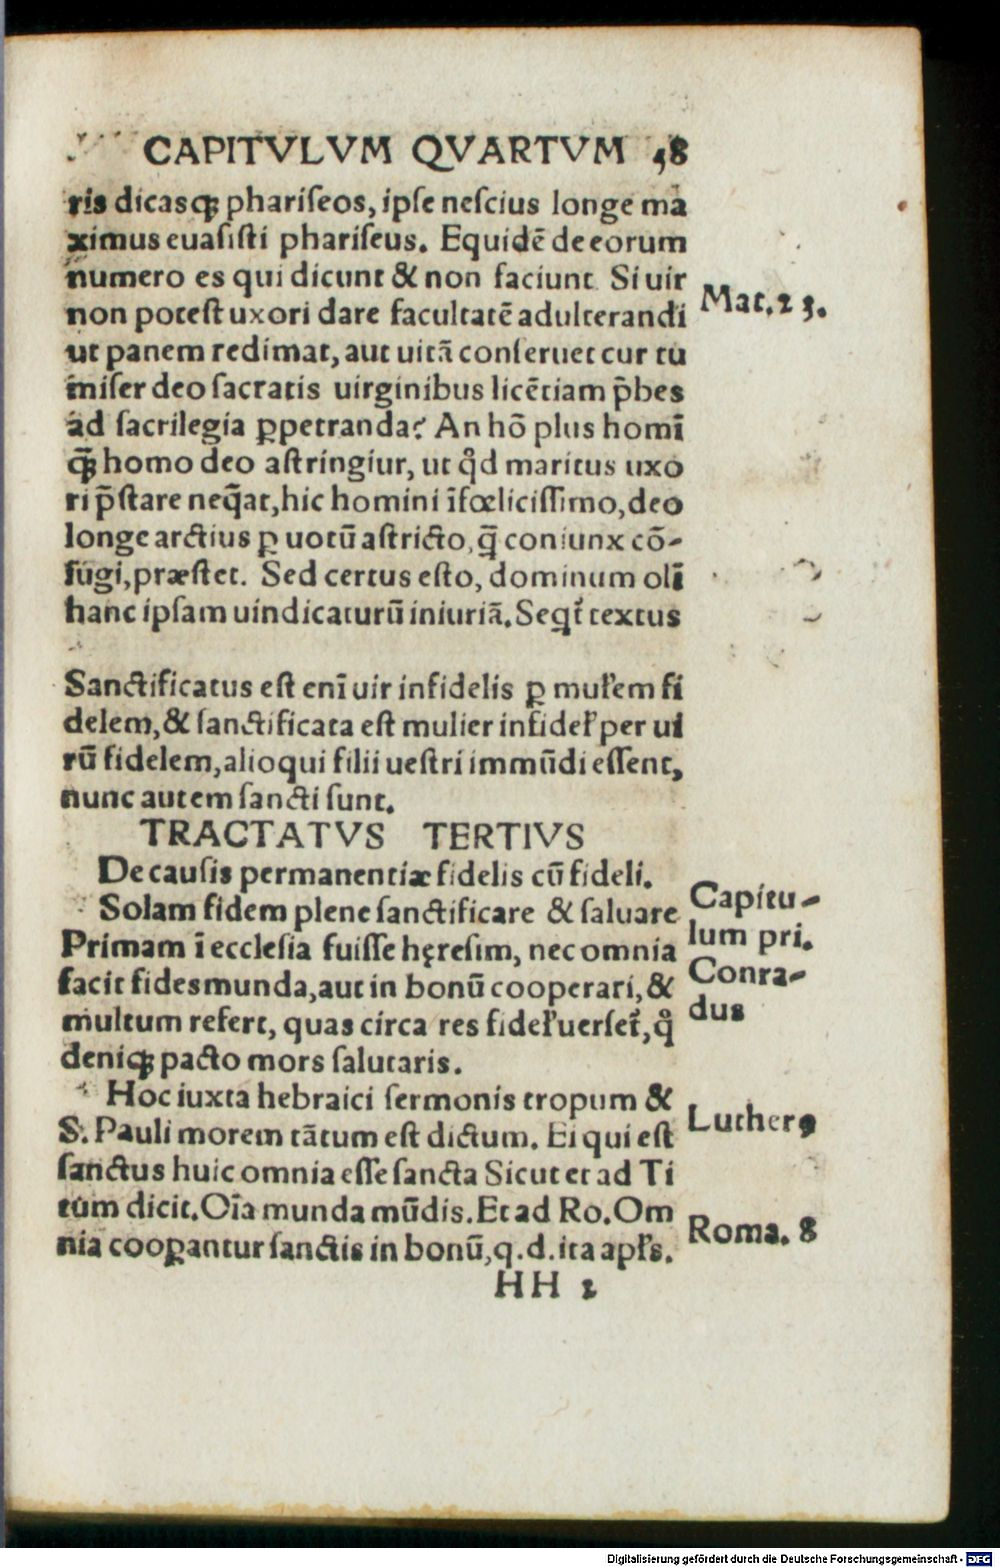 CAPITVLVM QVARTVM 58
ris dicasqꝫ phariſeos, ipſe neſcius longe ma
ximus euaſiſti phariſeus. Equidē de eorum
numero es qui dicunt & non faciunt Si uir
non poteſt uxori dare facultatē adulterandi
Mat. 23.
ut panem redimat, aut uitā conſeruet cur tu
miſer deo ſacratis uirginibus licētiam p̄bes
ad ſacrilegia ꝑpetranda? An hō plus homī
qꝫ̄ homo deo aſtringiur, ut qd̊ maritus uxo
ri p̄ſtare neq̄at, hic homini īfœliciſſimo, deo
longe arctius ꝑ uotū aſtricto, q̄ coniunx cō-
iugi, præſtet. Sed certus eſto, dominum olī
hanc ipſam uindicaturū iniuriā. Seqt᷑ textus
Sanctificatus eſt enī uir infidelis ꝑ mul̓em fi
delem, & ſanctificata eſt mulier infidel̓ per ui
rū fidelem, alioqui filii ueſtri immūdi eſſent,
nunc autem ſancti ſunt.
TRACTATVS TERTIVS
De cauſis permanentiæ fidelis cū fideli.
Solam fidem plene ſanctificare & ſaluare
Primam ī eccleſia fuiſſe hęreſim, nec omnia
facit fides munda, aut in bonū cooperari, &
multum refert, quas circa res fidel̓ uerſet᷑, q̊
deniqꝫ pacto mors ſalutaris.
Capitu-
lum pri.
Conra-
dus
Hoc iuxta hebraici ſermonis tropum &
S. Pauli morem tātum eſt dictum. Ei qui eſt
Lutherꝯ
ſanctus huic omnia eſſe ſancta Sicut et ad Ti
tum dicit. Oīa munda mūdis. Et ad Ro. Om
nia cooꝑantur ſanctis in bonū, q. d. ita apl̓s.
Roma. 8
HH 2
Digitalisierung gefördert durch die Deutsche Forschungsgemeinschaft - DFG